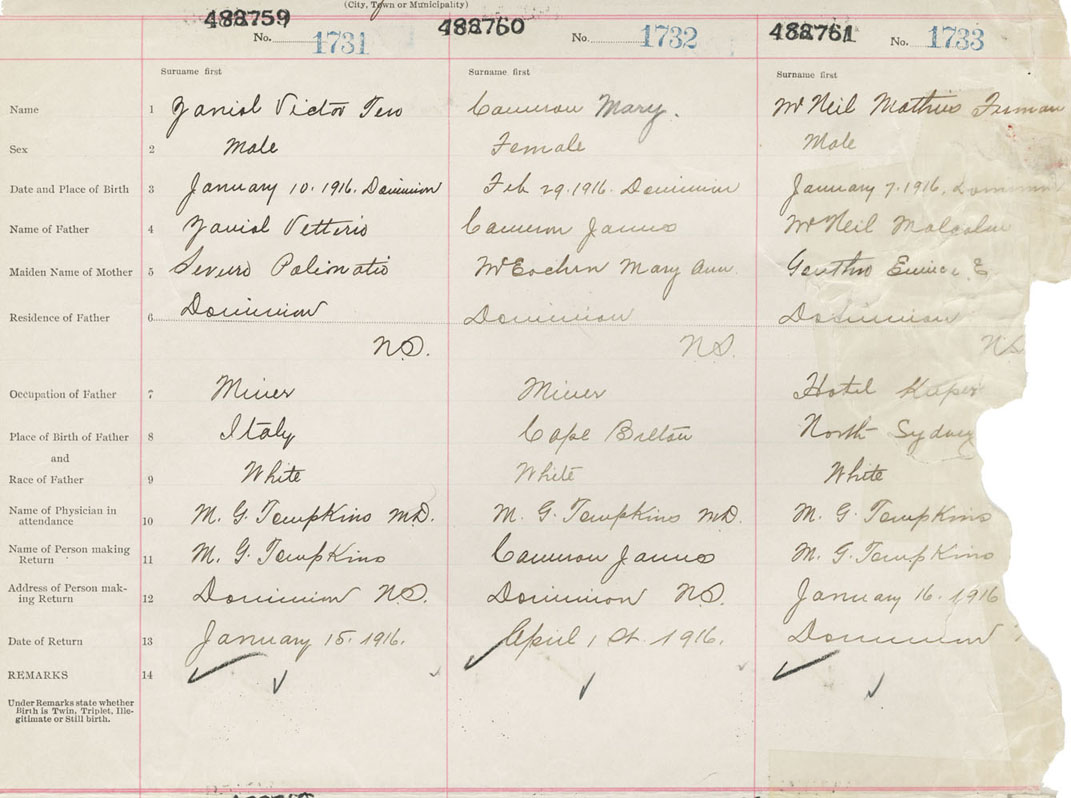 (City, Town or Municipality)
488759 488760 488761
No. 1731 No. 1732 No. 1733
Surname first Surname first Surname first
Name 1 Victor Cameron Mary. McNeil
Sex 2 Male Female Male
Date and Place of Birth 3 January 10. 1916. Dominion Feb 29. 1916. Dominion January 7. 1916, Dominion
Name of Father 4 Cameron James McNeil Malcolm
Maiden Name of Mother 5 Mary Ann
Residence of Father 6 Dominion Dominion Dominion
N.S. N.S. N.S.
Occupation of Father 7 Miner Miner Hotel
Place of Birth of Father 8 Italy Cape Breton North Sydney
and
Race of Father 9 White White White
Name of Physician in
attendance 10 M. G. Tompkins M.D. M. G. Tompkins M.D. M. G. Tompkins
Name of Person making
Return 11 M. G. Tompkins Cameron James M. G. Tompkins
Address of Person mak-
ing Return 12 Dominion N.S. Dominion N.S. January 16. 1916
Date of Return 13 January 15. 1916. April 1st. 1916. Dominion
REMARKS 14
Under Remarks state whether
Birth is Twin, Triplet, Ille-
gitimate or Still birth.